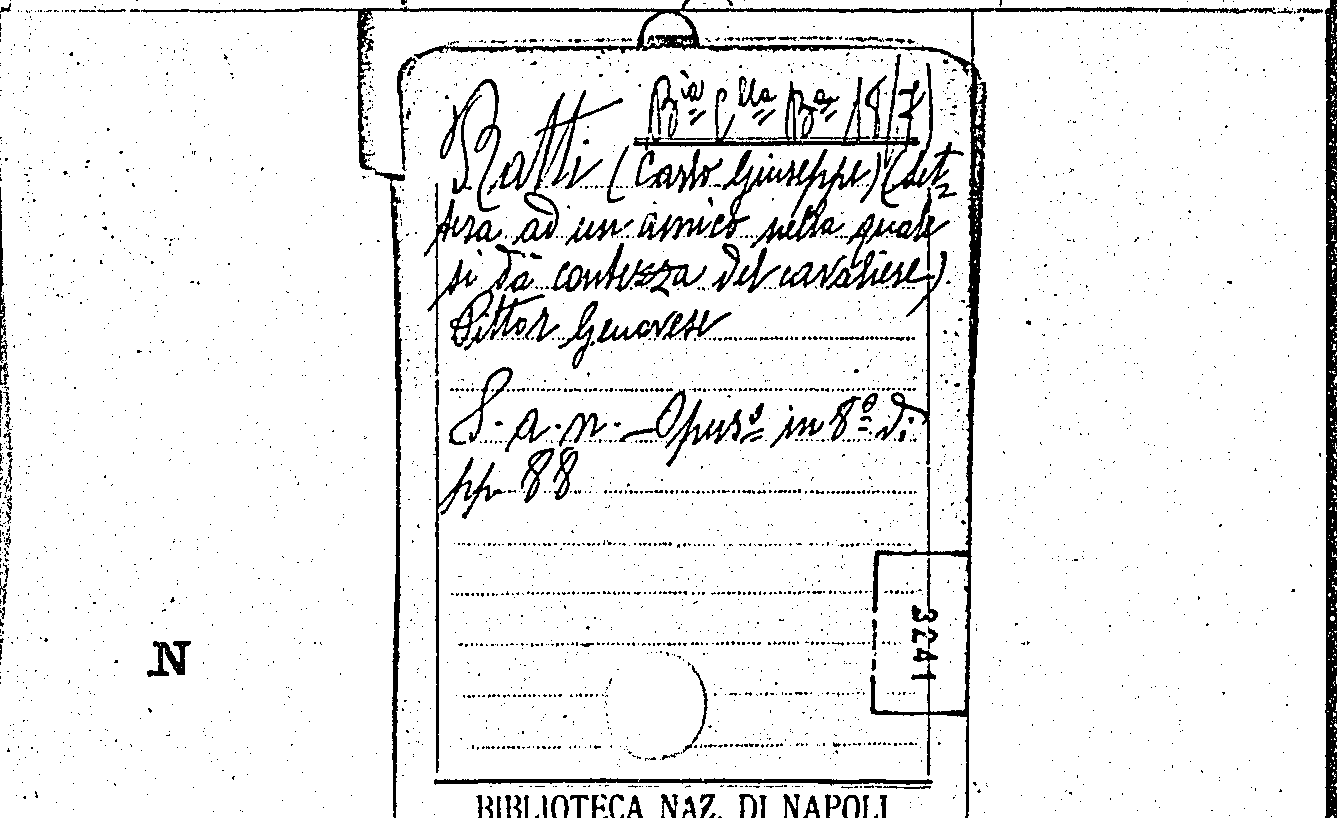 Bia Clla Ba 18/7
Ratti (Carlo Giuseppe) (Let-
tera ad un amico nella quale
si dà contezza del cavaliere).
Pittor Genovese
S. a. n. - Opuso in 8o di
pp. 88
3241
N
BIBLIOTECA NAZ. DI NAPOLI